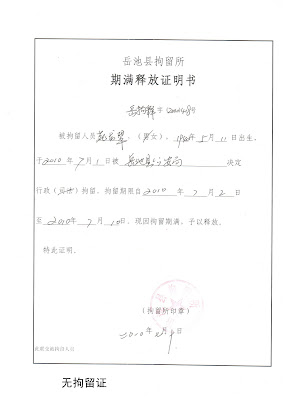 岳池县拘留所
期满释放证明书
岳拘释字
被拘留人员 (男女), 19 年5月11日出生,
于2010年7月1日被岳池县公安局决定
行政(司法)拘留。拘留期限自2010年7月2日
至2010年7月10日。现因拘留期满,予以释放。
特此证明。
(拘留所印章)
2010年 月 日
无拘留证